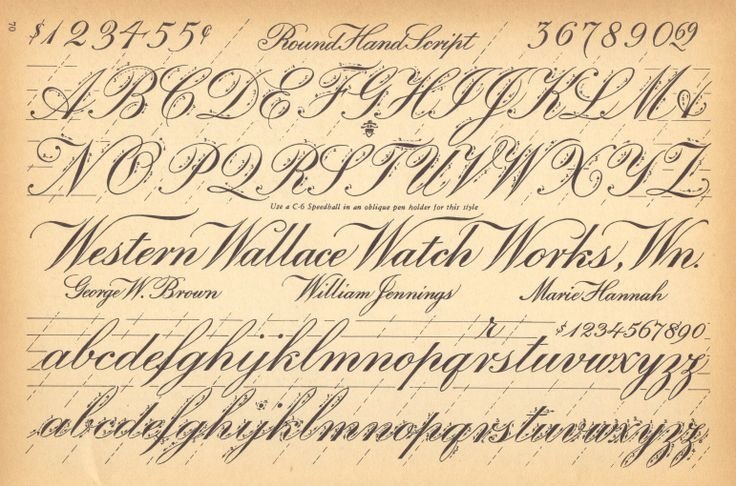 70
$123455¢ Round Hand Script 367890 69
ABCDEFGHIJKLM
NOPQRSTUVWXYZ
Use a C-6 Speedball in an oblique pen holder for this style
Western Wallace Watch Works, Wn.
George W. Brown William Jennings Marie Hannah
r $1234567890
abcdefghijklmnopqrstuvwxyzz
abcdefghijklmnopqrstuvwxyzz